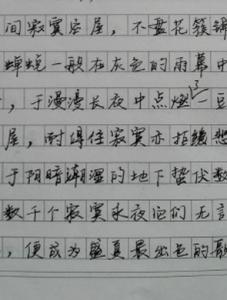 间寂寞空屋，不盘花簇锦
蝉蜕一般在灰色的雨幕中
，于漫漫长夜中点燃一豆
屋，耐得住寂寞亦拒绝悲
于阴暗潮湿的地下蛰伏数
数千个寂寞永夜它们无言
，便成为盛夏最出色的歌